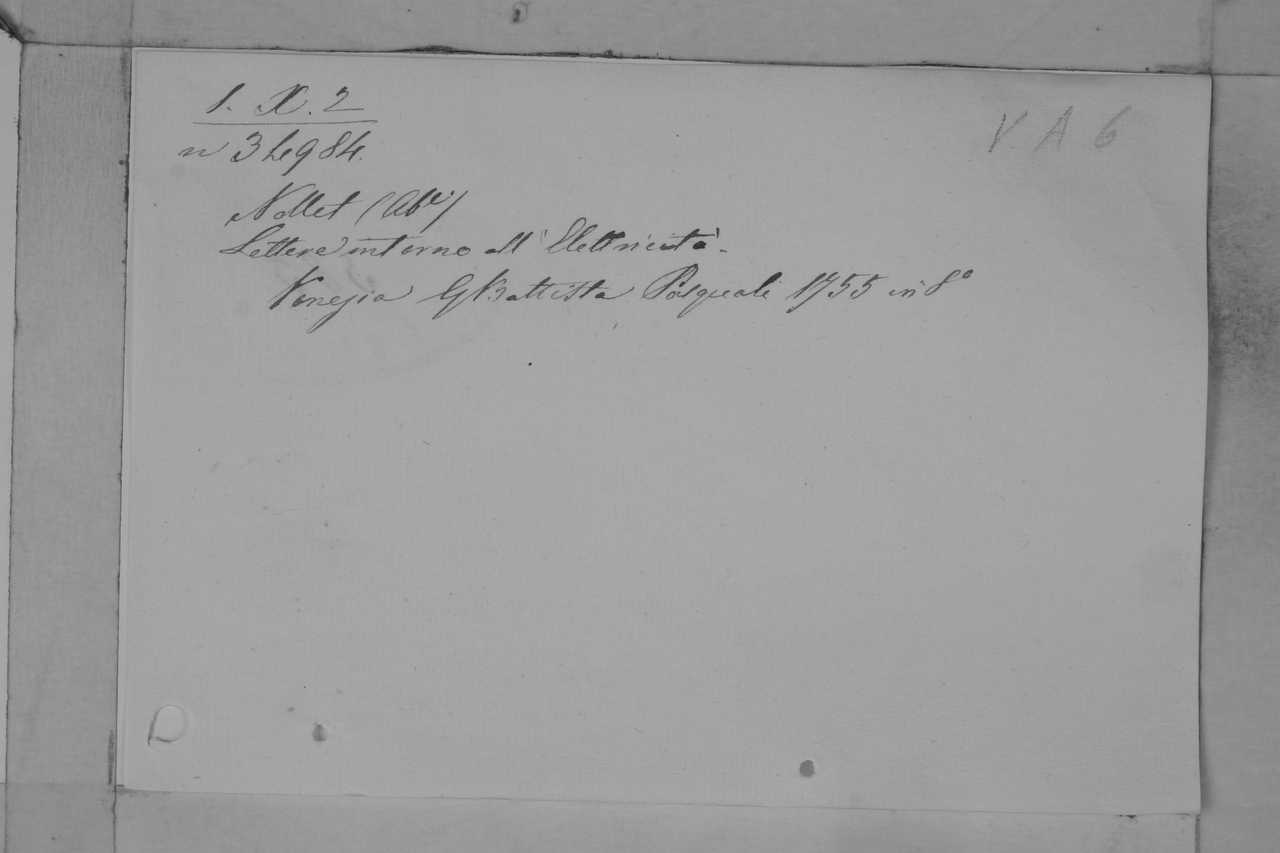 1. X. 2
V. A 6
n 34984.
Nollet (Abe)
Lettere intorno all'Elettricità.
Venezia GBattista Pasquali 1755 in 8°